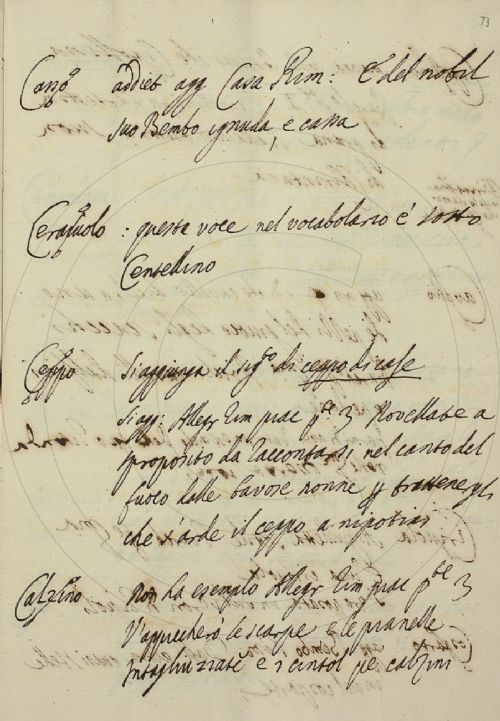 73
addiet agg Casa Rim: E del nobil
suo Bembo ignuda, e cassa
Ceraiuolo : questa voce nel vocabolario è sotto
Ceppo si aggiunga il sigto di ceppo di case
si agg: Allegr Rim piac pte 3 Novellate a
proposito da raccontarsi nel canto del
fuoco dalle bavose nonne
che s'arde il ceppo a nipotini
Calzino Non ha esemplo Allegr Rim piac pte 3
V'appiccherò le scarpe e le pianelle
Intagliuzzate e i cintol pe calzini